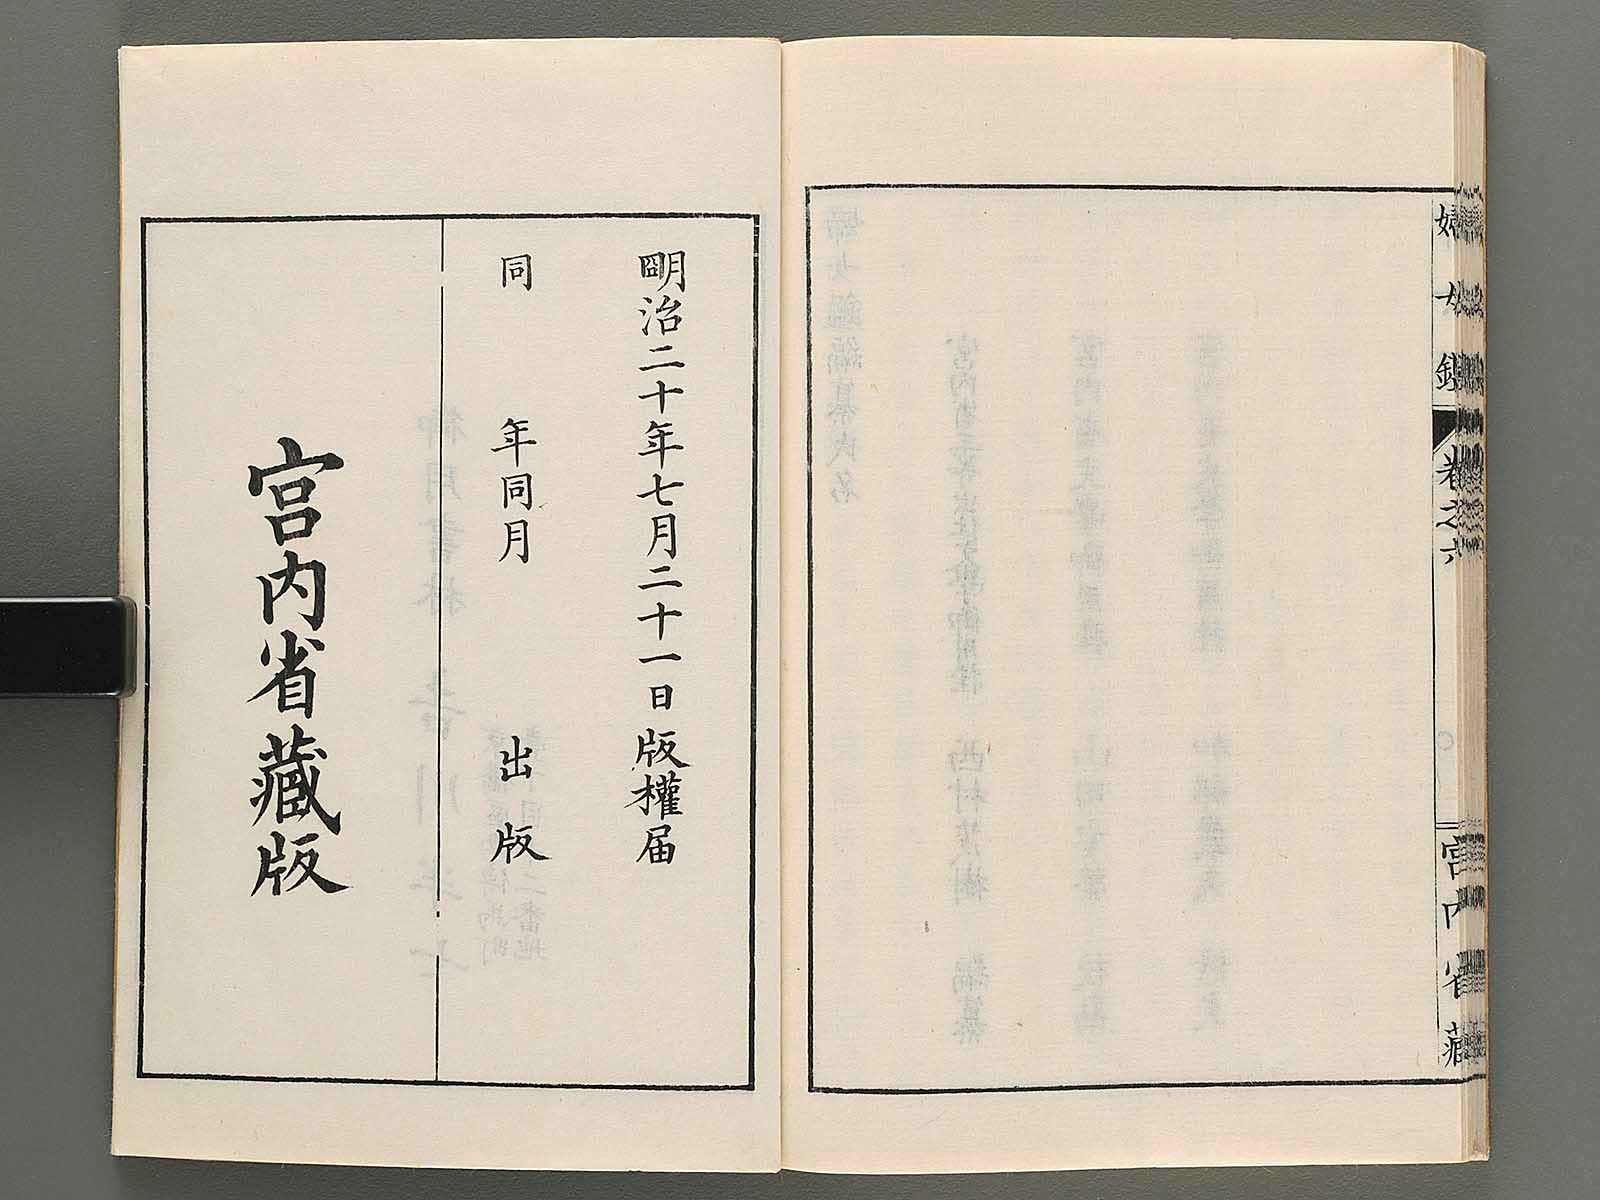 婦女鑑 卷之六 宮内省藏
明治二十年七月二十一日版權届
同年同月出版
宮内省藏版